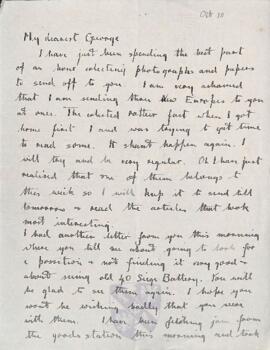 Oct 10
My dearest George
I have just been spending the best part
of an hour collecting photographs and papers
to send off to you. I am very ashamed
that I am sending three New Europes to you
at once. The collected rather fast when I got
home first I and was trying to get time
to read some. It shan't happen again. I
will try and be very regular. Oh I have just
realised that one of them belongs to
this week so I will keep it to send till
tomorrow & read the articles that look
most interesting.
I had another letter from you this morning
where you tell me about going to look for
a position & not finding it very good &
about seeing old 40 Siege Battery. You will
be glad to see them again. I hope you
won't be wishing badly that you were
with them. I have been fetching jam from
the goods station this morning and took